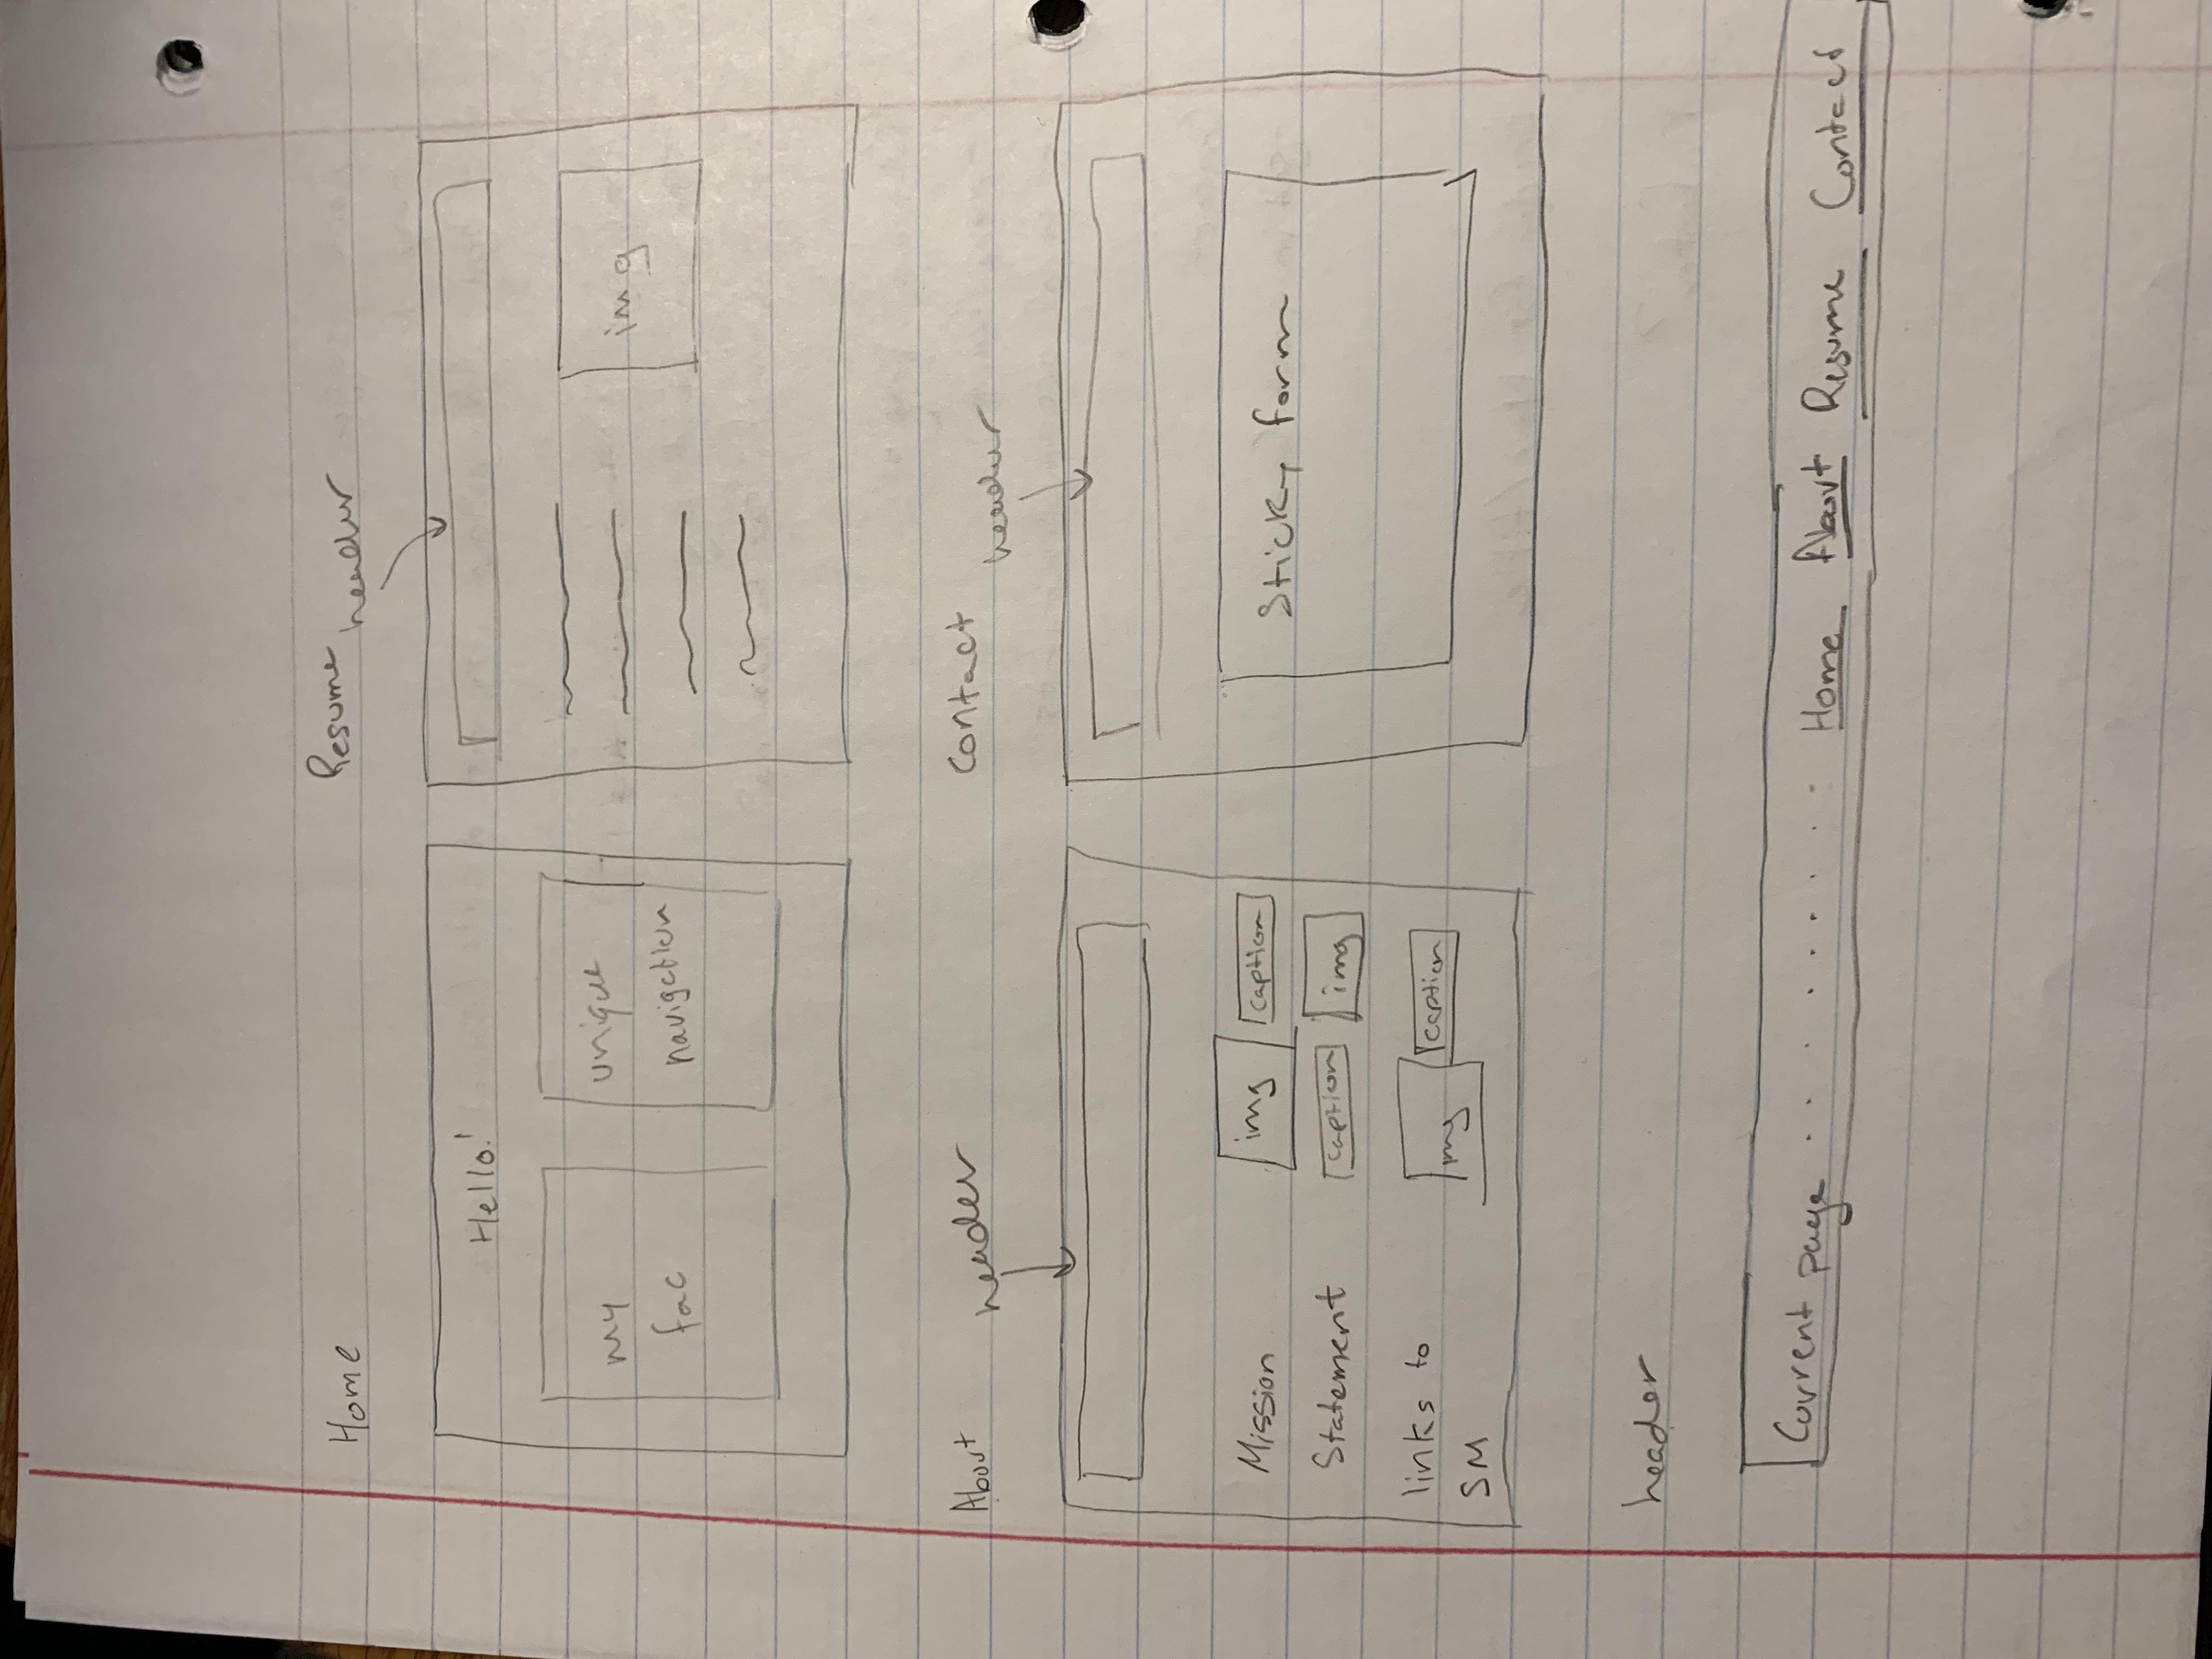 Home
Hello!
my
fac
unique
navigation
Resume
header
img
About
header
Mission
Statement
links to
SM
img
caption
caption
img
img
caption
Contact
header
Sticky form
header
Current page . . . . . . . . . Home About Resume Contact